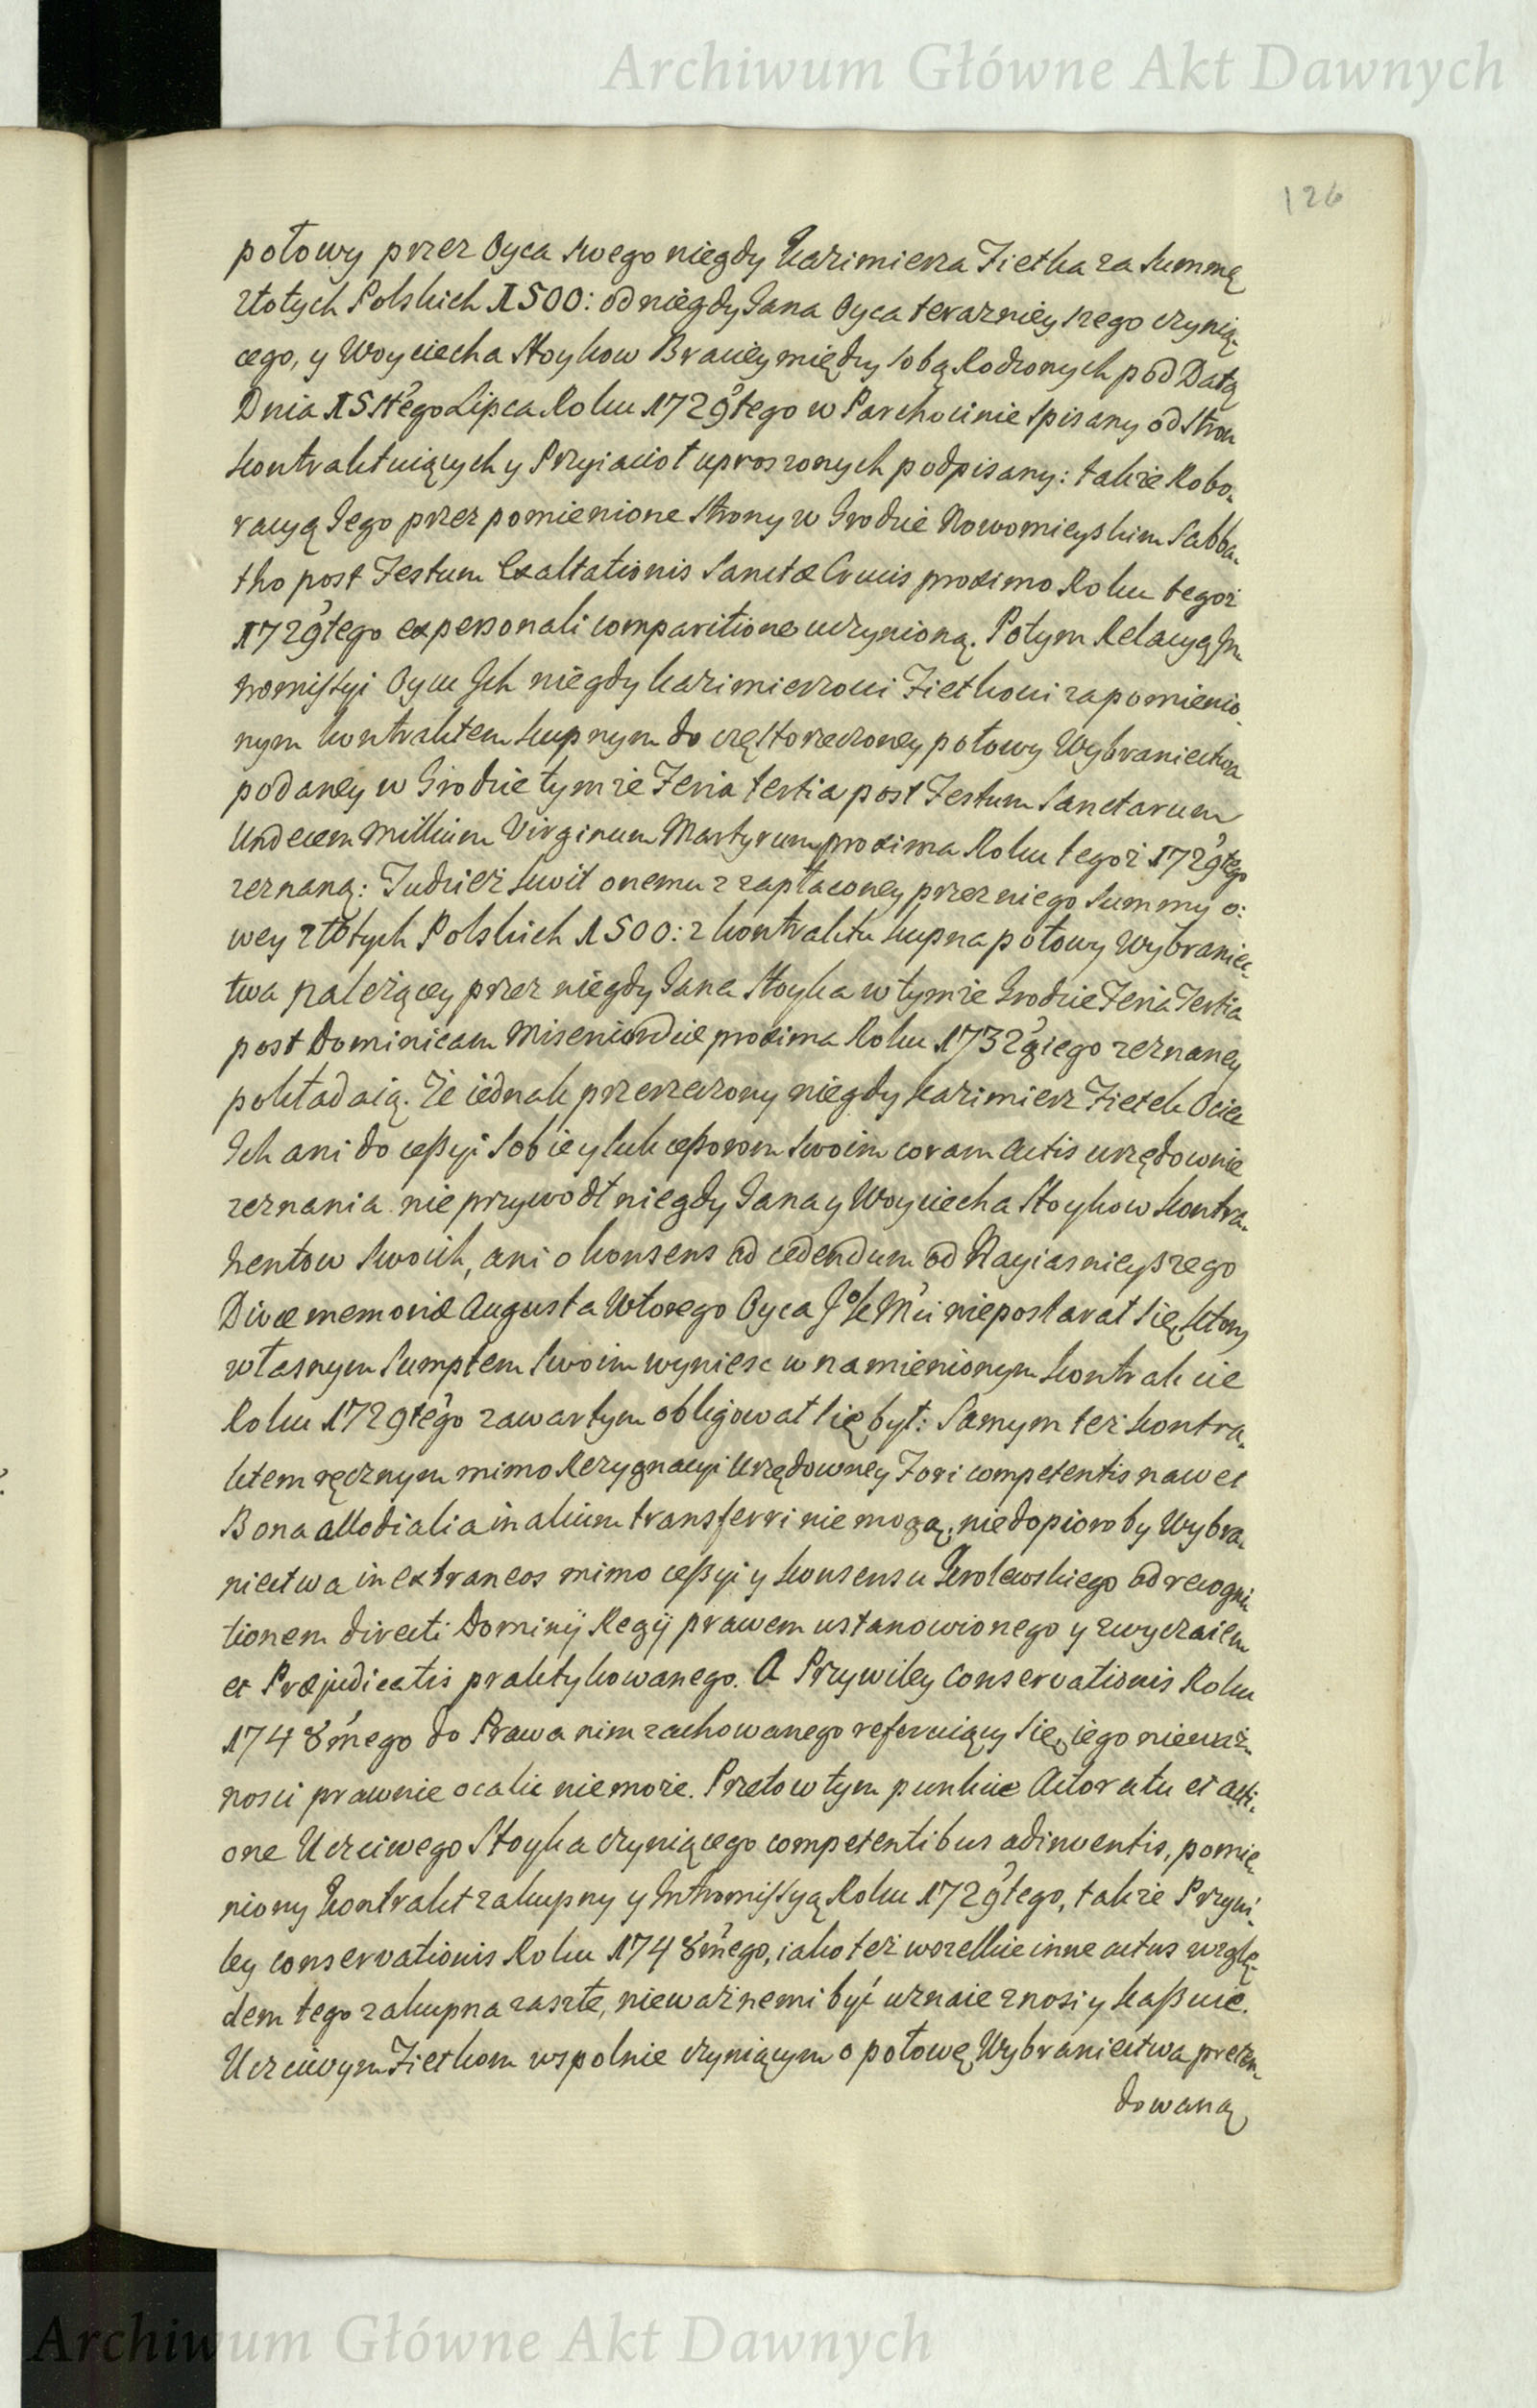 Archiwum Główne Akt Dawnych
126
połowy przez Oyca swego niegdy Kazimierza Zietka za summę
złotych Polskich 1500: od niegdy Jana Oyca teraznieyszego czynią-
cego, y Woyciecha Stoykow Braciey między sobą Rodzonych pod Datą
Dnia 15stego Lipca Roku 1729tego w Parchocinie spisany od stron
kontraktuiących y Przyiacioł uproszonych podpisany: takze Robo-
racyą Jego przez pomienione strony w Grodzie Nowomieyskim Sabba-
tho post Festum Exaltationis Sanctæ Crucis proximo Roku tegoż
1729tego ex personali comparitione uczynioną. Potym Relacyą In-
tromissyi Oycu Ich niegdy Kazimierzowi Zietkowi za pomienio-
nym kontraktem kupnym do częstorzeczoney połowy Wybraniectwa
podaney w Grodzie tymże Feria tertia post Festum Sanctarum
Undecem Millium Virginum Martyrum proxima Roku tegoż 1729tego
zeznaną: Tudzież kwit onemu z zapłaconey przez niego Summy o-
wey złotych Polskich 1500: z kontraktu kupna połowy Wybraniec-
twa należącey przez niegdy Jana Stoyka w tymże Grodzie Feria Tertia
post Dominicam Misericordiæ proxima Roku 1732giego zeznaney
pokładaią. Że iednak przerzeczony niegdy Kazimierz Zietek Ociec
Ich ani do ceßyi sobie y sukceßorom swoim coram Actis urzędownie
zeznania nie przywodł niegdy Jana y Woyciecha Stoykow kontra-
hentow swoich, ani o konsens ad cedendum od Nayiasnieyszego
Divæ memoriæ Augusta Wtorego Oyca JKMci niepostarał się, ktory
własnym sumptem swoim wyniesc w namienionym kontrakcie
Roku 1729tego zawartym obligował się był: Samym też kontra-
ktem ręcznym mimo Rezygnacyi Urzędowney Fori competentis nawet
Bona allodialia in alium transferri nie mogą, niedopioro by Wybra-
niectwa in extraneos mimo ceßyi y konsensu Krolewskiego ad recogni-
tionem directi Dominij Regij prawem ustanowionego y zwyczaiem
et Præjudicatis praktykowanego. A Przywiley Conservationis Roku
1748mego do Prawa nim zachowanego referuiący się, iego nieważ-
nosci prawnie ocalic niemoże. Przeto w tym punkcie Actoratu et acti-
one Uczciwego Stoyka czyniącego competentibus adinventis, pomie-
niony kontrakt zakupny y Intromissyą Roku 1729tego, takze Przywi-
ley conservationis Roku 1748mego, iako też wszelkie inne actus wzglę-
dem tego zakupna zaszłe, nieważnemi być uznaie znosi y kaßuie.
Uczciwym Zietkom wspolnie czyniącym o połowę Wybraniectwa preten-
dowaną
Archiwum Główne Akt Dawnych